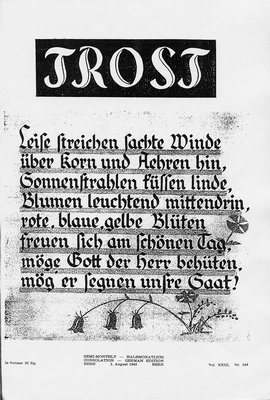 TROST
Leise streichen sachte Winde
über Korn und Aehren hin,
Sonnenstrahlen küssen linde,
Blumen leuchtend mittendrin,
rote, blaue, gelbe Blüten
freuen sich am schönen Tag
möge Gott der Herr behüten,
mög er segnen unsre Saat!
SEMI-MONTHLY — HALBMONATLICH
CONSOLATION — GERMAN EDITION
BERN 1. August 1945 BERN
Vol. XXIII, No.